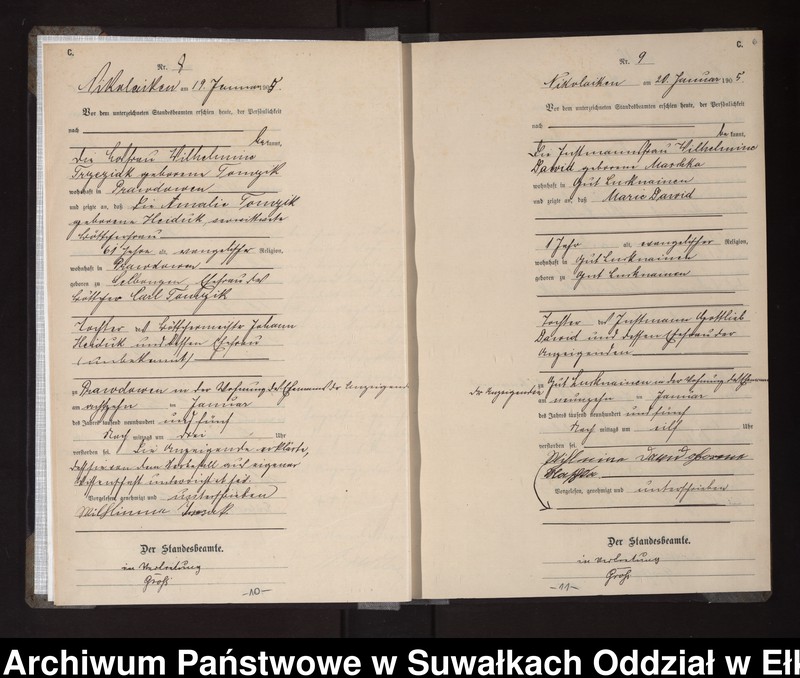 C.
Nr. 8
Nikolaiken am 19. Januar 1905.
Vor dem unterzeichneten Standesbeamten erschien heute, der Persönlichkeit
nach
bekannt,
die Losfrau Wilhelmine
geborene Tomzik
wohnhaft in Prawdowen
und zeigte an, daß die Amalie Tomzik
geborene Heiduk, verwitwete
Böttcherfrau
61 Jahre alt, evangelischer Religion,
wohnhaft in Prawdowen
geboren zu Selbongen, Ehefrau des
Böttcher Carl Tomzik
Tochter des Böttchermeister Johann
Heiduk und dessen Ehefrau
(unbekannt)
zu Prawdowen in der Wohnung des Ehemanns der Anzeigenden
am achtzehn ten Januar
des Jahres tausend neunhundert und fünf
Nach mittags um drei Uhr
verstorben sei. Die Anzeigende erklärte,
daß sie von dem Sterbefall aus eigener
Wissenschaft unterrichtet sei
Vorgelesen, genehmigt und unterschrieben
Wilhelmine
Der Standesbeamte.
in Vertretung
Groß
-10-
C. 6
Nr. 9
Nikolaiken am 20. Januar 1905.
Vor dem unterzeichneten Standesbeamten erschien heute, der Persönlichkeit
nach
bekannt,
Die Instmannsfrau Wilhelmine
Dawid geborene
wohnhaft in Gut Luknainen
und zeigte an, daß Marie Dawid
1 Jahr alt, evangelischer Religion,
wohnhaft in Gut Luknainen
geboren zu Gut Luknainen
Tochter des Instmann Gottlieb
Dawid und dessen Ehefrau der
Anzeigenden
zu Gut Luknainen in der Wohnung des Ehemanns
der Anzeigenden
am neunzehn ten Januar
des Jahres tausend neunhundert und fünf
Nach mittags um elf Uhr
verstorben sei.
Wilhelmine Dawid geborene
Vorgelesen, genehmigt und unterschrieben
Der Standesbeamte.
in Vertretung
Groß
-11-
Archiwum Państwowe w Suwałkach Oddział w Ełk